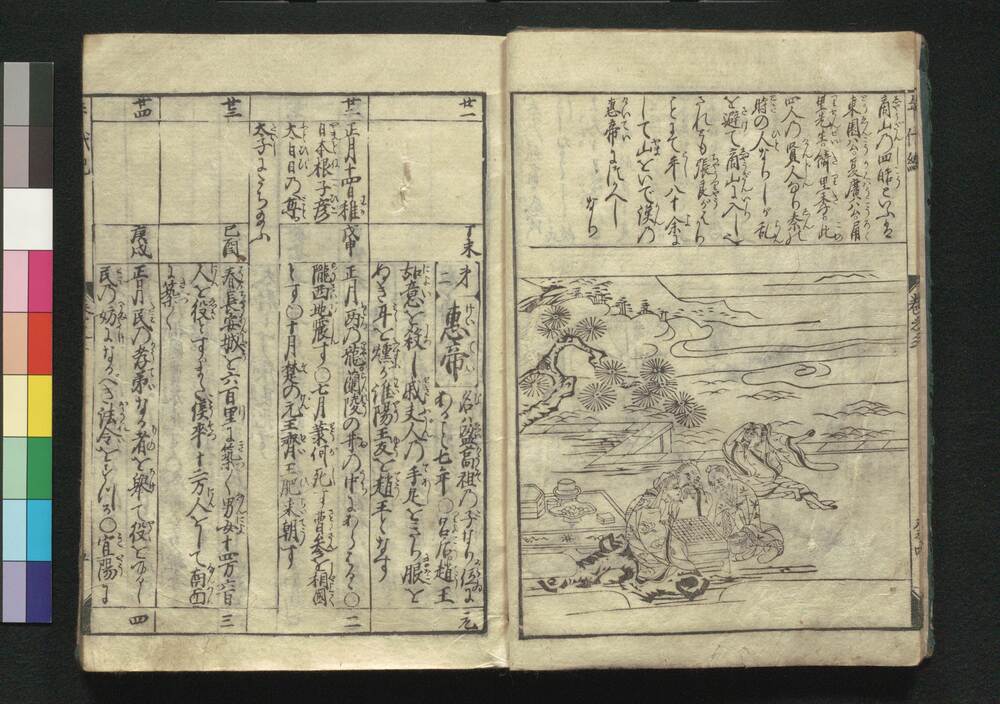 商山の四晧といふは
東園公夏黄公甪
里先生綺里季此
四人の賢人なり秦の
時の人なりしが乱
を避て商山にかくし
されども張良がはかり
ことにて年八十余に
して山をいで漢の
恵帝につかへし
なり
廿一
丁未
才二 恵帝
名は盈高祖の子なり位に
ある七年〇呂后趙王
如意を殺し戚夫人の手足をきり眼を
ぬき耳を燻
淮陽王友を趙王となす
元
廿二
正月十四日稚
日本根子彦
大日日の尊
太子にたちたまふ
戊申
正月両の龍蘭陵の井の中にあらはる〇
隴西地震す〇七月蕭何死す曹参を相国
とす〇十月楚の元王斉王肥来朝す
二
廿三
己酉
春長安城を六百里に築く男女十四万六百
人を役とす
徒卒十二万人をして南面
を築く
三
廿四
庚戌
正月民の孝弟なる者を挙て役をゆるし
民の妨になるべき法令をはぶく〇宜陽に
四